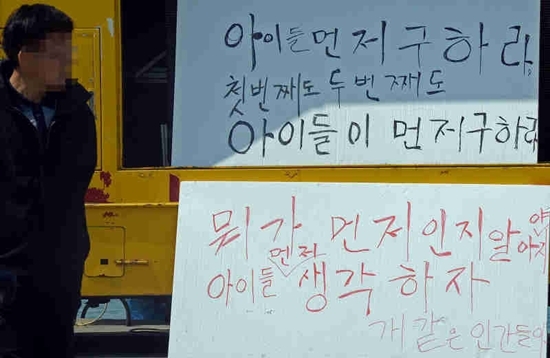 아이들먼저구하라
첫번째도 두번째도
아이들이 먼저구하라
뭐가 먼저인지알아야지
아이들 먼저 생각하자
개같은인간들아